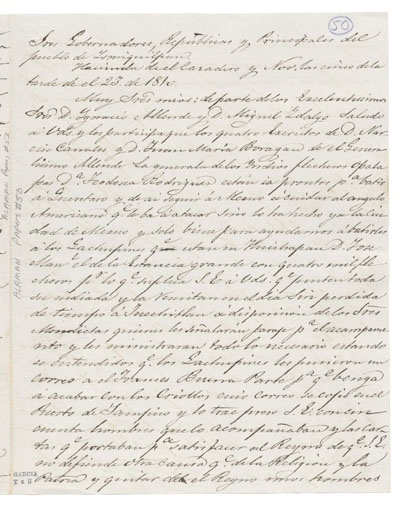 50
Sres Gobernadores, Repúblicas y Principales del
pueblo de Ixmiquilpan.
Hacienda de el Cazadero y Nov. las cinco de la
tarde de el 23. de 1810.
Muy Sres mios: de parte de los Excelentisimos
Sres D. Ignacio Allende y D. Miguel Idalgo Saludo
á Vds. y les participo que los quatro Exercitos de D. Nar-
ciso Canales y D. Juan Maria Boragan de el Genera-
lisimo Allende La generala de los Yndios flecheros
pas Da. Teodosea Rodriguez estan ia prontos pa. batir
á Queretaro y de ai seguir á Mexico a cuidar al angulo
Americano qe. le ba Batacar sino lo ha hecho ya la Ciu-
dad de Mexico y solo biene para ayudarnos á batirles
á los Gachupines qe. estan en Huichapan D. Jose
Manl. el de la Estancia grande con quatro mil fle-
cheros pr. lo qe. suplica S. E. á Vds. qe. junten toda
su indiada y la remitan en el dia Sin perdida
de tiempo á Tecozautla á disposicion de los Sres
quienes les señalaran parage pa. el acampame-
nto y les ministraran todo lo necesario estando
en entendidos qe. los Gachupines les pusieron un
correo a el Frances Buena Parte pa. qe. benga
a acabar con los Criollos cuio correo se cojió en el
Puerto de Tampico y lo trae preso S. E. con cin-
cuenta hombres que lo acompañaban y las car-
tas qe. portaban pa. satisfacer al Reyno de qe. S. E.
no defiende otra causa qe. de la Religion y la
Patria y quitar de el Reyno unos hombres
GARCIA
ALAMAN PAPERS #53